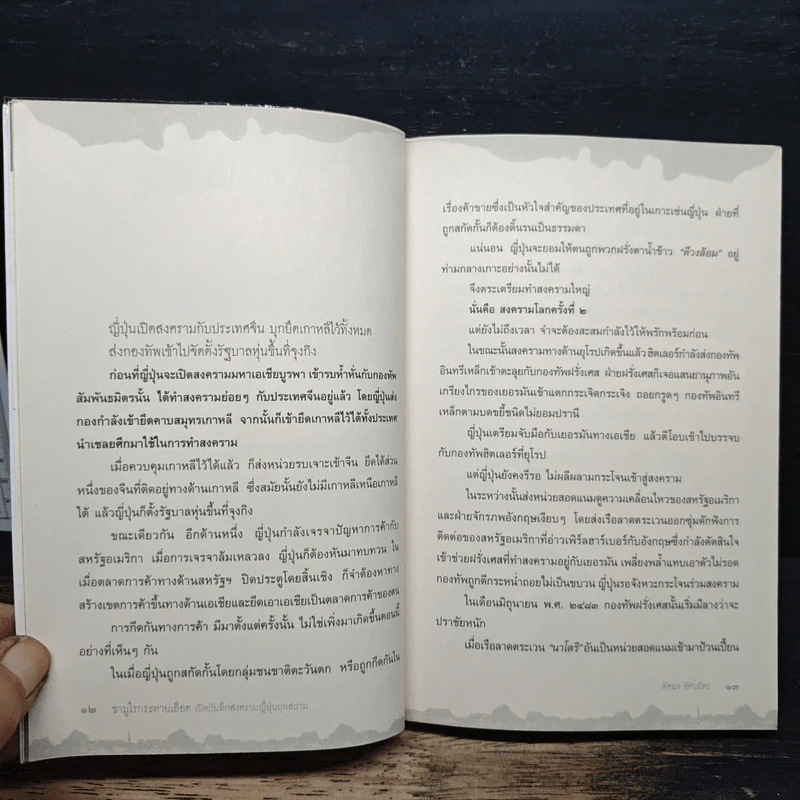 ญี่ปุ่นเปิดสงครามกับประเทศจีน บุกยึดเกาหลีไว้ทั้งหมด
ส่งกองทัพเข้าไปจัดตั้งรัฐบาลหุ่นขึ้นที่จุงกิง
ก่อนที่ญี่ปุ่นจะเปิดสงครามมหาเอเชียบูรพา เข้ารบห้ำหั่นกับกองทัพ
สัมพันธมิตรนั้น ได้ทำสงครามย่อยๆ กับประเทศจีนอยู่แล้ว โดยญี่ปุ่นส่ง
กองกำลังเข้ายึดคาบสมุทรเกาหลี จากนั้นก็เข้ายึดเกาหลีไว้ได้ทั้งประเทศ
นำเชลยศึกมาใช้ในการทำสงคราม
เมื่อควบคุมเกาหลีไว้ได้แล้ว ก็ส่งหน่วยรบเจาะเข้าจีน ยึดได้ส่วน
หนึ่งของจีนที่ติดอยู่ทางด้านเกาหลี ซึ่งสมัยนั้นยังไม่มีเกาหลีเหนือเกาหลี
ใต้ แล้วญี่ปุ่นก็ตั้งรัฐบาลหุ่นขึ้นที่จุงกิง
ขณะเดียวกัน อีกด้านหนึ่ง ญี่ปุ่นกำลังเจรจาปัญหาการค้ากับ
สหรัฐอเมริกา เมื่อการเจรจาล้มเหลวลง ญี่ปุ่นก็ต้องหันมาทบทวน ใน
เมื่อตลาดการค้าทางด้านสหรัฐฯ ปิดประตูโดยสิ้นเชิง ก็จำต้องหาทาง
สร้างเขตการค้าขึ้นทางด้านเอเชียและยึดเอาเอเชียเป็นตลาดการค้าของตน
การกีดกันทางการค้า มีมาตั้งแต่ครั้งนั้น ไม่ใช่เพิ่งมาเกิดขึ้นตอนนี้
อย่างที่เห็นๆ กัน
ในเมื่อญี่ปุ่นถูกสกัดกั้นโดยกลุ่มชนชาติตะวันตก หรือถูกกีดกันใน
๑๒ ซามูไรกระหายเลือด เปิดบันทึกสงครามญี่ปุ่นบุกสยาม
เรื่องค้าขายซึ่งเป็นหัวใจสำคัญของประเทศที่อยู่ในเกาะเช่นญี่ปุ่น ฝ่ายที่
ถูกสกัดกั้นก็ต้องดิ้นรนเป็นธรรมดา
แน่นอน ญี่ปุ่นจะยอมให้ตนถูกพวกฝรั่งตาน้ำข้าว "ตีวงล้อม" อยู่
ท่ามกลางเกาะอย่างนั้นไม่ได้
จึงตระเตรียมทำสงครามใหญ่
นั่นคือ สงครามโลกครั้งที่ ๒
แต่ยังไม่ถึงเวลา จำจะต้องสะสมกำลังไว้ให้พรักพร้อมก่อน
ในขณะนั้นสงครามทางด้านยุโรปเกิดขึ้นแล้ว ฮิตเลอร์กำลังส่งกองทัพ
อินทรีเหล็กเข้าตะลุยกับกองทัพฝรั่งเศส ฝ่ายฝรั่งเศสก็เจอแสนยานุภาพอัน
เกรียงไกรของเยอรมันเข้าแตกกระเจิดกระเจิง ถอยกรูดๆ กองทัพอินทรี
เหล็กตามบดขยี้ชนิดไม่ยอมปรานี
ญี่ปุ่นเตรียมจับมือกับเยอรมันทางเอเชีย แล้วตีโอบเข้าไปบรรจบ
กับกองทัพฮิตเลอร์ที่ยุโรป
แต่ญี่ปุ่นยังคงรีรอ ไม่ผลีผลามกระโจนเข้าสู่สงคราม
ในระหว่างนั้นส่งหน่วยสอดแนมดูความเคลื่อนไหวของสหรัฐอเมริกา
และฝ่ายจักรภพอังกฤษเงียบๆ โดยส่งเรือลาดตระเวนออกซุ่มดักฟังการ
ติดต่อของสหรัฐอเมริกาที่อ่าวเพิร์ลฮาร์เบอร์กับอังกฤษซึ่งกำลังตัดสินใจ
เข้าช่วยฝรั่งเศสที่ทำสงครามอยู่กับเยอรมัน เพลี่ยงพล้ำแทบเอาตัวไม่รอด
กองทัพถูกตีกระหน่ำถอยไม่เป็นขบวน ญี่ปุ่นรอจังหวะกระโจนร่วมสงคราม
ในเดือนมิถุนายน พ.ศ. ๒๔๘๓ กองทัพฝรั่งเศสนั้นเริ่มมีลางว่าจะ
ปราชัยหนัก
เมื่อเรือลาดตระเวน "นาโตริ" อันเป็นหน่วยสอดแนมเข้ามาป้วนเปี้ยน
๑๓